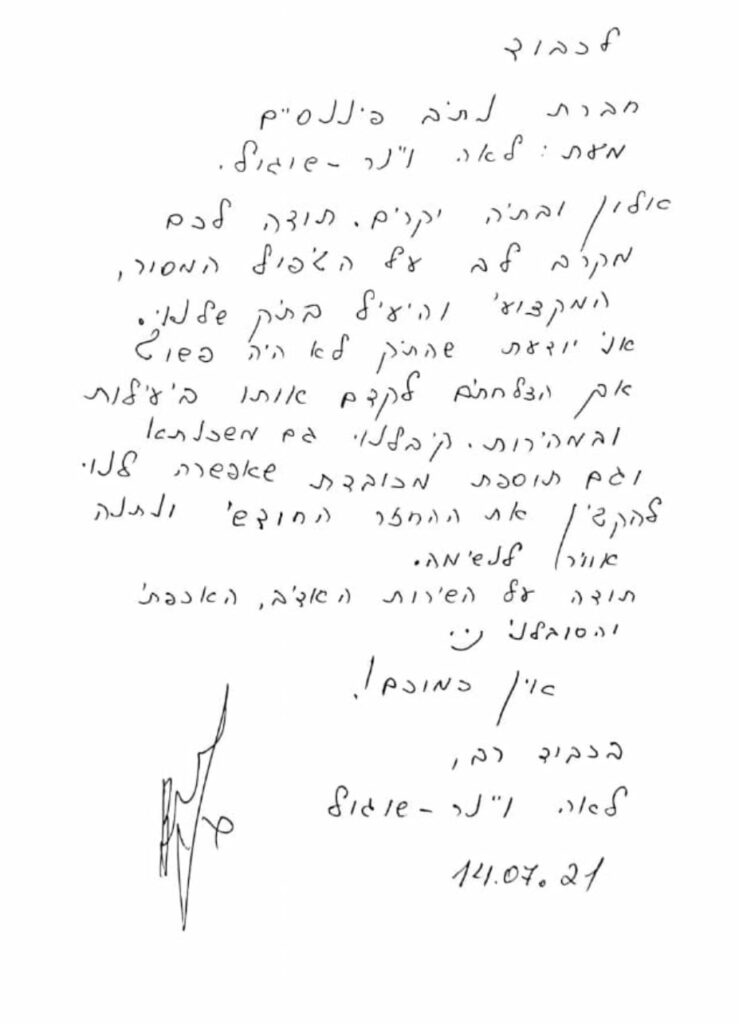 לכבוד
חברת נתיב פיננסים
מאת: לאה וינר-שוגול.
אילון ובתיה יקרים. תודה לכם
מקרב לב על הטיפול המסור,
המקצועי והיעיל בתיק שלנו.
אני יודעת שהתיק לא היה פשוט
אך הצלחתם לקדם אותו ביעילות
ובמהירות. קיבלנו גם משכנתא
וגם תוספת מכובדת שאפשרה לנו
להקטין את ההחזר החודשי ונתנה
אוויר לנשימה.
תודה על השירות האדיב, האכפתי
והסובלני
אין כמוכם!
בכבוד רב,
לאה וינר-שוגול
14.07.21